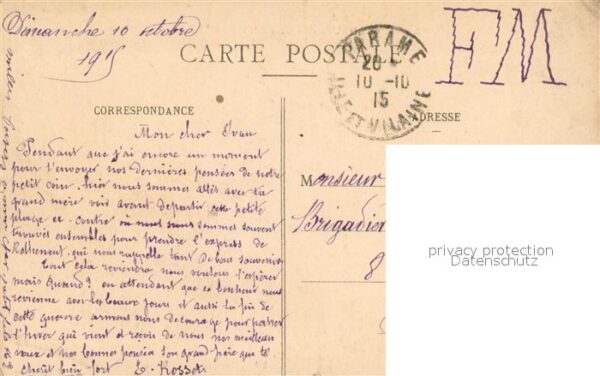 Dimanche 10 octobre
1915
CARTE POSTALE
FM
PARAMÉ
10-10
15
ILLE ET VILAINE
CORRESPONDANCE
ADRESSE
Mon cher Ivan
Pendant que j'ai encore un moment
pour t'envoyer nos dernières pensées de notre
petit coin. hier nous sommes allés avec ta
grand mère voir avant de partir cette petite
plage et contre où nous nous sommes souvent
trouvés ensembles pour prendre l'express de
Rotheneuf. qui nous rappelle tant de bons souvenirs
tout cela reviendra nous voulons l'espérer
mais quand? en attendant que ce bonheur nous
revienne avec les beaux jours et aussi la fin de
cette guerre armons nous de courage pour passer
l'hiver qui vient et reçois de nous nos meilleurs
vœux et nos bonnes pensées ton grand père qui te
chérit bien fort E. Rosset
Monsieur
Brigadier
8
privacy protection
Datenschutz